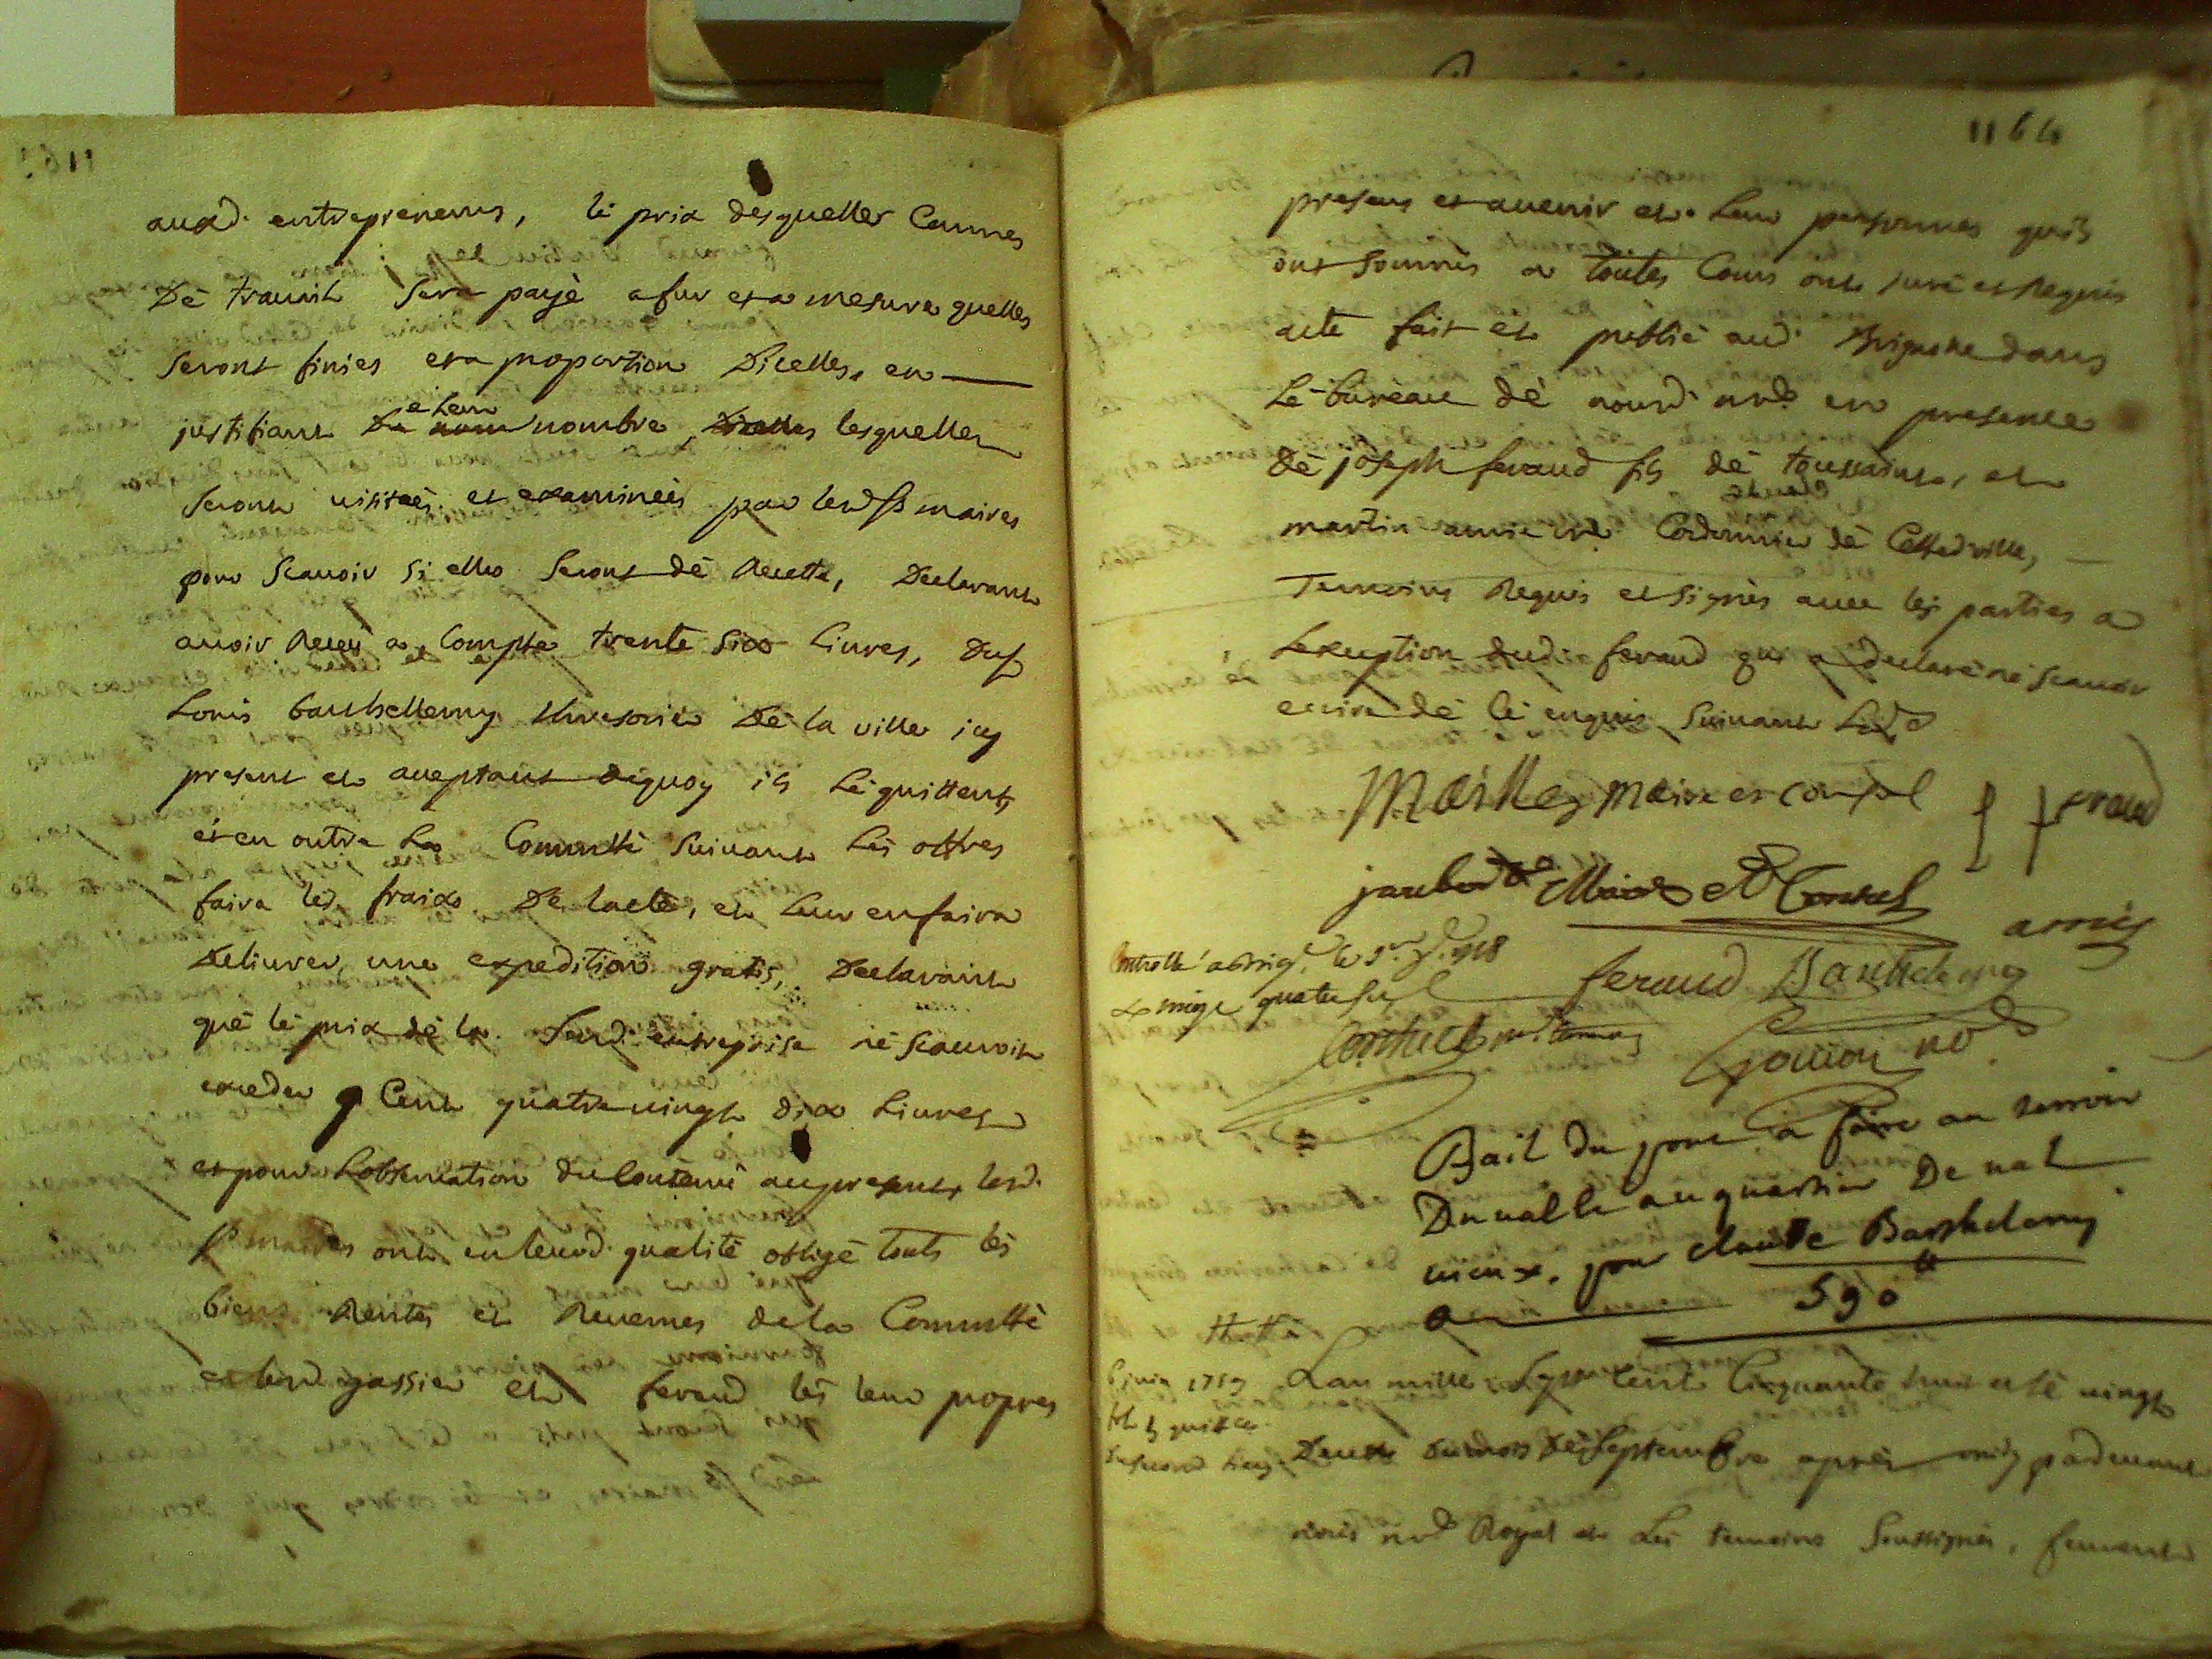 auxd. entrepreneurs, le prix desquelles Cannes
De travail sera payé a fur et a mesure quelles
seront finies et a proportion Dicelles, en
justifiant De leur nombre, lesquelles
seront visitées et examinées par lesd. srs maires
pour scavoir si elles seront dé Recette, Declarant
avoir Receu a Compte trente six livres, du sr
Louis barthellemy thresorier Dé la ville icy
present et acceptant dequoy ils lé quittent
et en outre la Commtté suivant les offres
faira les fraix De lacte, et leur en faira
Delivrer une expedition gratis, Declarant
qué lé prix dé la susd. entreprise né scauroit
exceder Cent quatre vingt dix livres
et pour Lobservation du Contenu au present, lesd.
srs maires ont en leurd. qualité obligé touts les
biens Rentes et Revenus de la Commtté
et lesd. gassier et feraud les leur propres
1164
presens et avenir et leur personnes quils
ont soumis a toutes Cours ont juré et Requis
acte fait et publié aud. Brignole dans
Le bureau dé nousd. nore en presence
dé joseph feraud fils dé toussaint, et
martin amic Cordonnier dé Cetted. ville,
Temoins Requis et signés avec les parties a
Lexception dud. feraud qui a declaré né scavoir
ecrire dé cé enquis suivant Lord.
Maille maire et consul
feraud
jaubert Maire et Consul
amic
Controllé a Brig. le
feraud Barthelemy
Goujon nore
Bail du pont a faire au terroir
Du valle au quartier De val
vieux, pour claude Barthelemy
a 590 ll
6 juin 1759
Lan mille sept Cent Cinquante huit et lé vingt
Deux du mois dé septembre après midy pardevant
nous nore Royal et les temoins soussignés, furent